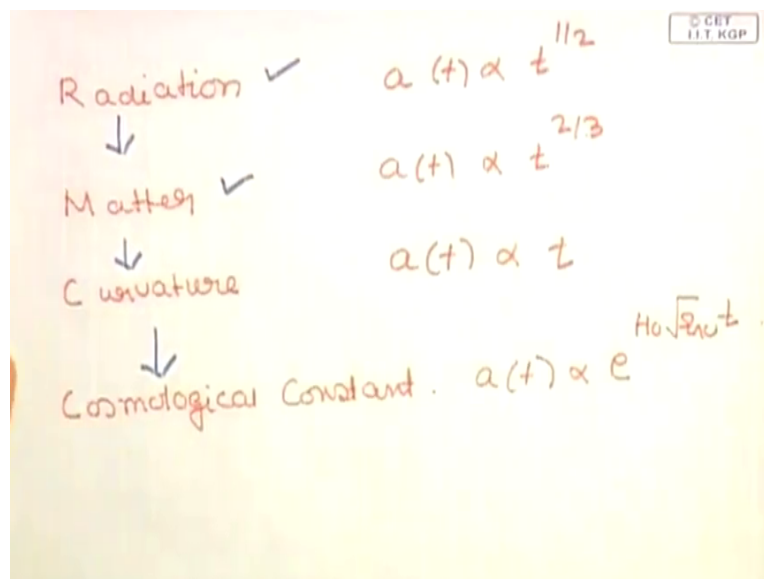 © CET
I.I.T. KGP
Radiation ✓ a (t) ∝ t^1/2
↓
Matter ✓ a(t) ∝ t^2/3
↓
Curvature a(t) ∝ t
↓
Cosmological Constant. a(t) ∝ e^H₀√Ω t